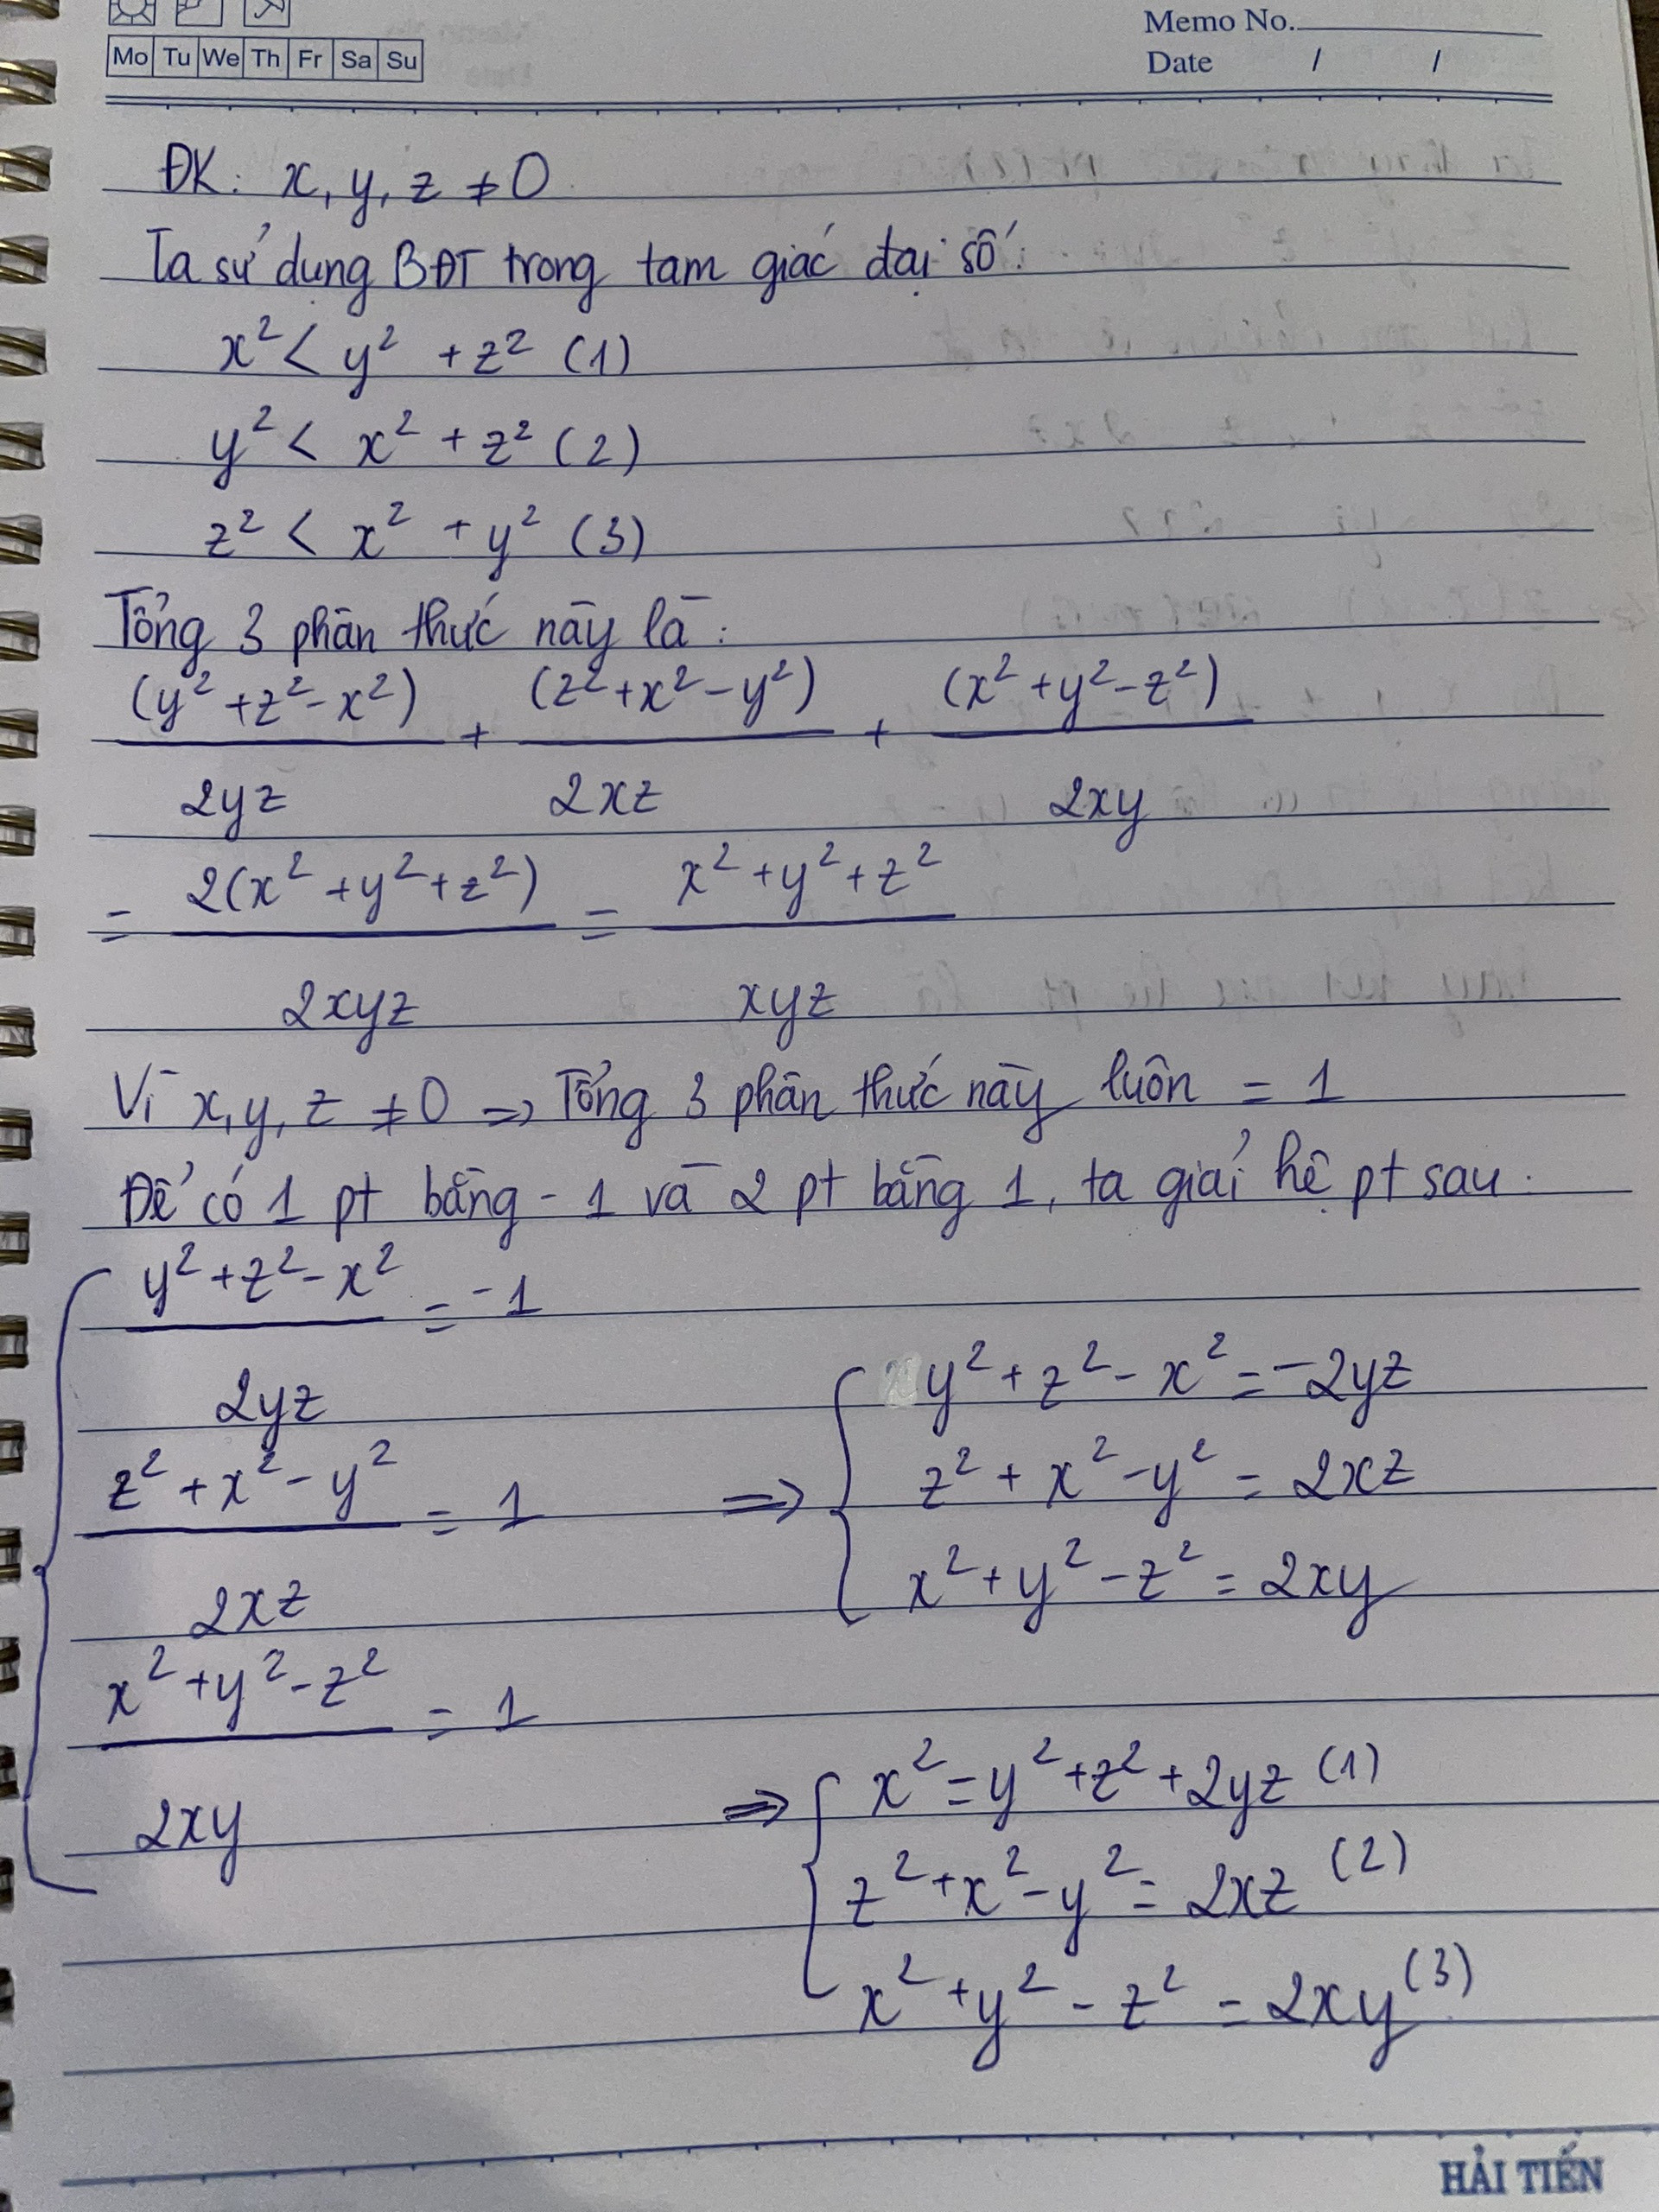 Memo No.
Mo Tu We Th Fr Sa Su
Date / /
ĐK: x, y, z ≠ 0
Ta sử dụng BĐT trong tam giác đại số:
x² < y² + z² (1)
y² < x² + z² (2)
z² < x² + y² (3)
Tổng 3 phân thức này là:
(y² + z² - x²)/2yz + (z² + x² - y²)/2xz + (x² + y² - z²)/2xy
= 2(x² + y² + z²)/2xyz = x² + y² + z²/xyz
Vì x, y, z ≠ 0 => Tổng 3 phân thức này luôn = 1
Để có 1 pt bằng -1 và 2 pt bằng 1, ta giải hệ pt sau:
y² + z² - x²/2yz = -1
z² + x² - y²/2xz = 1
x² + y² - z²/2xy = 1
=> y² + z² - x² = -2yz
z² + x² - y² = 2xz
x² + y² - z² = 2xy
=> x² = y² + z² + 2yz (1)
z² + x² - y² = 2xz (2)
x² + y² - z² = 2xy (3)
HẢI TIẾN